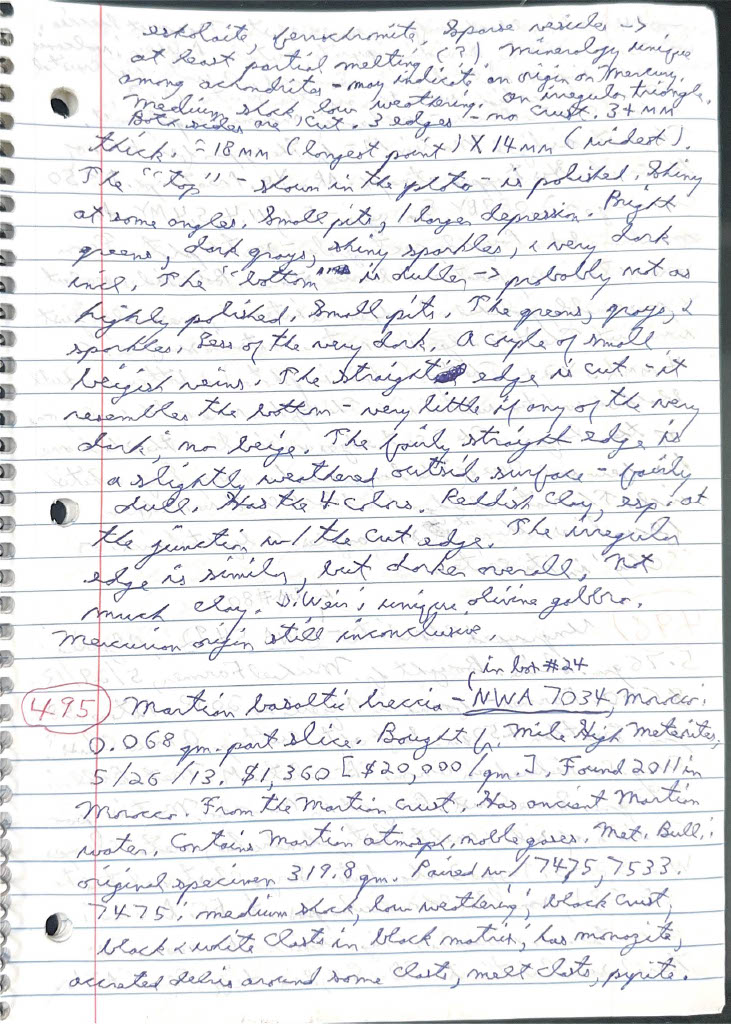 eskolaite, ferrochromite. Sparse vesicles ->
at least partial melting (?). Minerology unique
among achondrites - may indicate an origin on Mercury.
Medium shock, low weathering. An irregular triangle.
Both sides are cut. 3 edges - no crust. 3+ mm
thick. ≈ 18 mm (longest point) X 14 mm (widest).
The "top" - shown in the photo - is polished. Shiny
at some angles. Small pits, 1 larger depression. Bright
greens, dark grays, shiny sparkles, & very dark
incl. The "bottom" is duller -> probably not as
highly polished. Small pits. The greens, grays, &
sparkles. Less of the very dark. A couple of small
beigish veins. The straight edge is cut - it
resembles the bottom - very little if any of the very
dark, no beige. The fairly straight edge is
a slightly weathered outside surface - fairly
dull. Has the 4 colors. Reddish clay, esp. at
the junction w/ the cut edge. The irregular
edge is similar, but darker overall, not
much clay. D. Weir: unique olivine gabbro.
Mercurian origin still inconclusive.
in box #24
495 Martian basaltic breccia - NWA 7034, Morocco.
0.068 gm. part slice. Bought fr. Mile High Meteorites,
5/26/13. $1,360 [$20,000/gm.]. Found 2011 in
Morocco. From the Martian crust. Has ancient Martian
water. Contains Martian atmosph. noble gases. Met. Bull.:
original specimen 319.8 gm. Paired w/ 7475, 7533.
7475: medium shock, low weathering; black crust,
black & white clasts in black matrix; has monazite,
accreted debris around some clasts, melt clasts, pyrite.